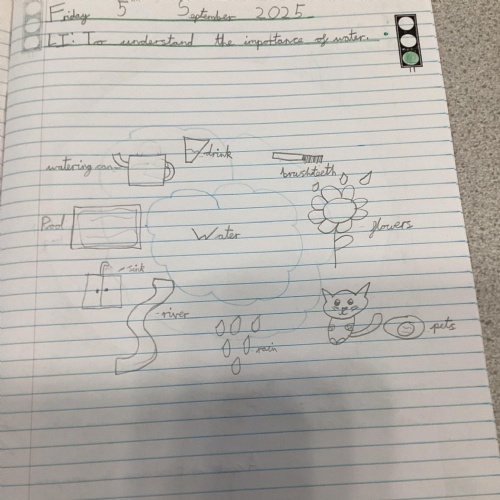 Friday 5th September 2025
LI: To understand the importance of water.
drink
watering can
brushteeth
Pool
Water
flowers
sink
river
rain
pets